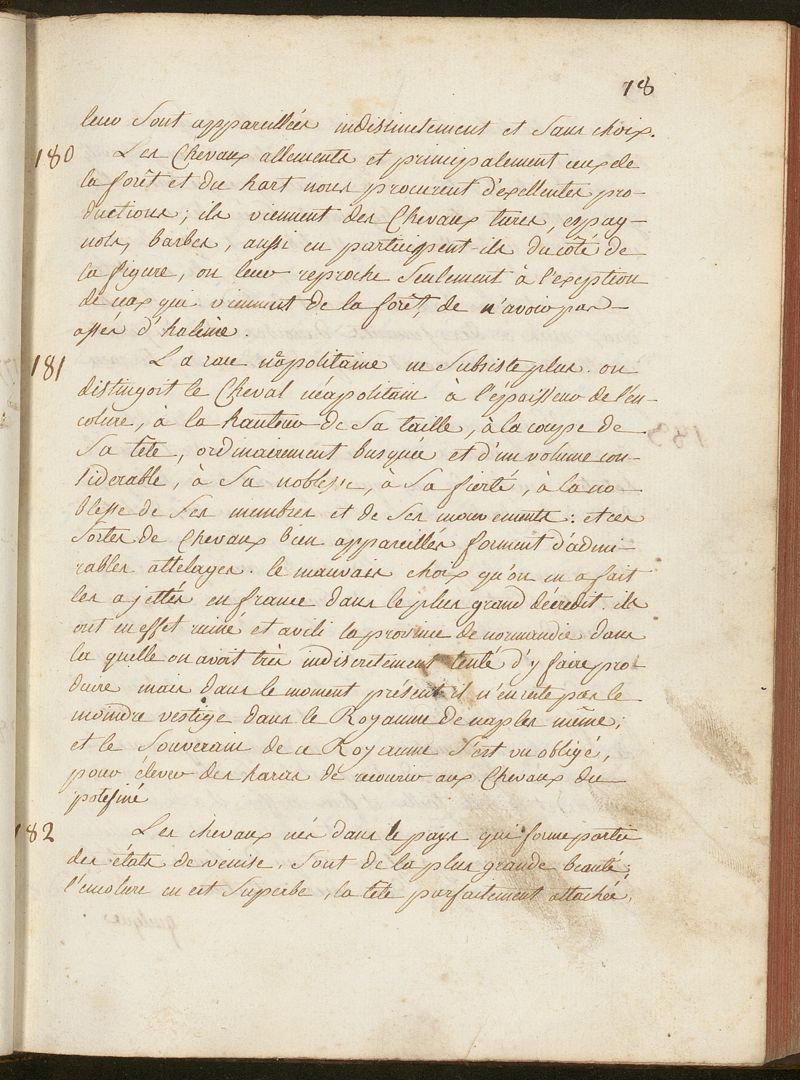 78
leur sont appareillés indistinctement et sans choix.
180 Les Chevaux allements et principalement ceux de
la forêt et du hart nous procurent d'excellentes pro-
ductions; ils viennent des Chevaux turcs, espag-
nols, barbes, aussi en participent-ils du côté de
la figure, on leur reproche seulement à l'exception
de ceux qui viennent de la forêt, de n'avoir pas
assés d'haleine.
181 La race napolitaine ne subsiste plus. on
distingoit le Cheval néapolitain à l'epaisseur de l'en-
colure, à la hauteur de sa taille, à la coupe de
sa tete, ordinairement busquée et d'un volume con-
siderable, à sa noblesse, à sa fierté, à la no-
blesse de ses membres et de ses mouvements: et ces
sortes de Chevaux bien appareillés forment d'admi-
rables attelages. le mauvais choix qu'on en a fait
les a jettés en france dans le plus grand décredit. ils
ont en effet ruiné et avili la province de normandie dans
la quelle on avoit très indiscretement tenté d'y faire pro-
duire mais dans le moment présent il n'en reste pas le
moindre vestige dans le Royaume de naples même;
et le Souverain de ce Royaume s'est vu obligé,
pour élever des haras de recourir aux Chevaux du
polesiné
182 Les chevaux nés dans le pays qui forme partie
des états de venise, sont de la plus grande beauté;
l'encolure en est superbe, la tête parfaitement attachée,
quelques